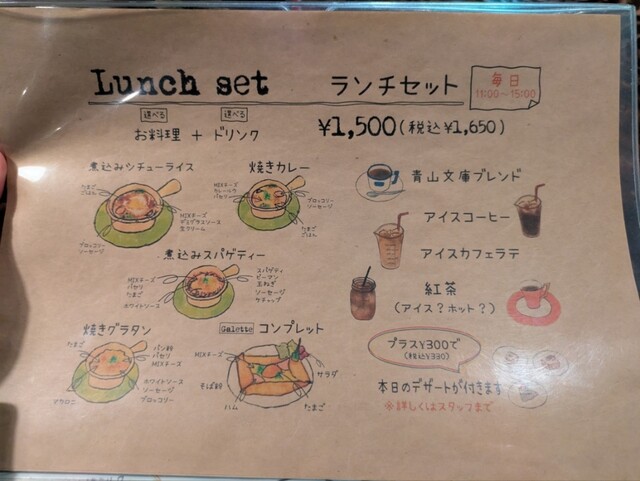 Lunch set ランチセット
毎日
11:00～15:00
選べる 選べる
お料理 + ドリンク ¥1,500(税込¥1,650)
煮込みシチューライス
たまご
ごはん
MIXチーズ
デミグラスソース
生クリーム
ブロッコリー
ソーセージ
焼きカレー
MIXチーズ
カレールウ
パセリ
ブロッコリー
ソーセージ
たまご
ごはん
煮込みスパゲティー
MIXチーズ
パセリ
たまご
ホワイトソース
スパゲティ
ピーマン
玉ねぎ
ソーセージ
ケチャップ
焼きグラタン
たまご
パン粉
パセリ
MIXチーズ
ホワイトソース
ソーセージ
ブロッコリー
マカロニ
Galette コンプレット
MIXチーズ
そば粉
ハム
サラダ
たまご
青山文庫ブレンド
アイスコーヒー
アイスカフェラテ
紅茶
(アイス?ホット?)
プラス¥300で
(税込¥330)
本日のデザートが付きます
※詳しくはスタッフまで